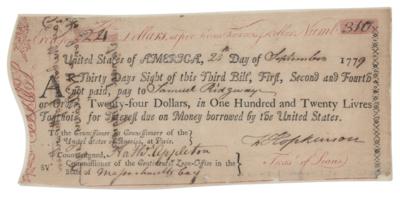 24 Dollars, at five Livres Tournois per Dollar Numb. 310
United States of AMERICA, 2d Day of September 1779
AT Thirty Days Sight of this Third Bill, First, Second and Fourth
not paid, pay to Samuel Ridgway
or Order, Twenty-four Dollars, in One Hundred and Twenty Livres
Tournois, for Interest due on Money borrowed by the United States.
To the Commissioner or Commissioners of the
United States of America, at Paris.
F Hopkinson
Countersigned, Nath Appleton
Treasr. of Loans.
Commissioner of the Continental Loan-Office in the
State of Massachusetts Bay